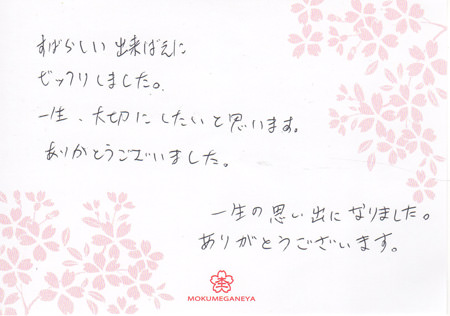 すばらしい出来ばえに
ビックリしました。
一生、大切にしたいと思います。
ありがとうございました。
一生の思い出になりました。
ありがとうございます。
MOKUMEGANEYA